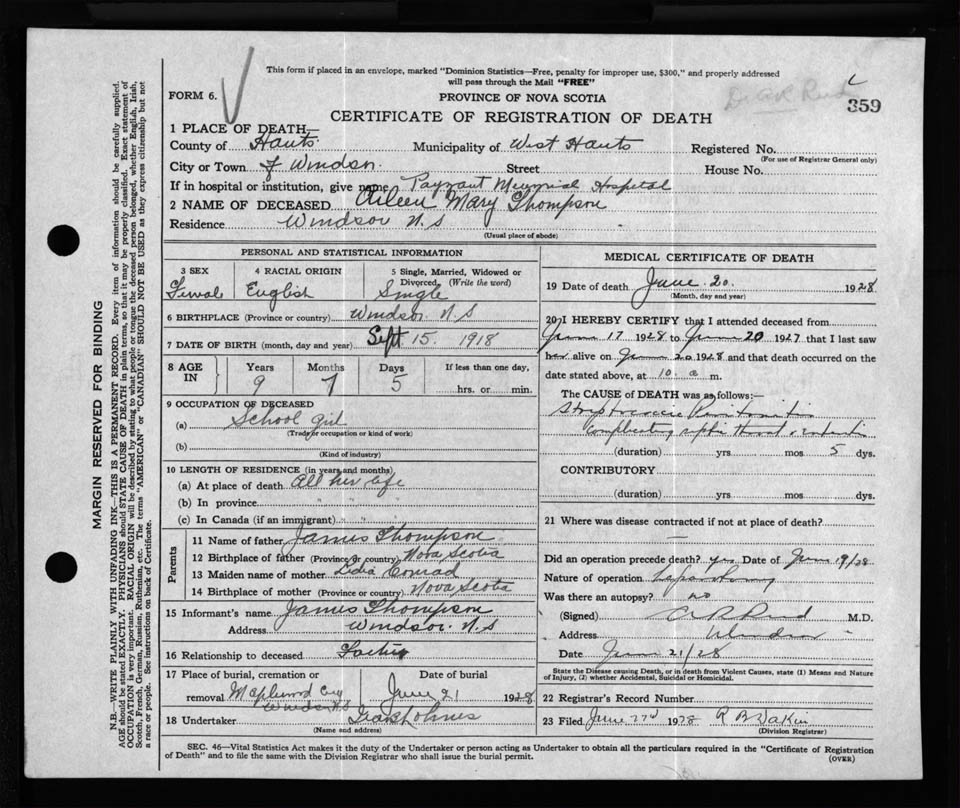 This form if placed in an envelope, marked "Dominion Statistics—Free, penalty for improper use, $300," and properly addressed
will pass through the Mail "FREE"
FORM 6.
PROVINCE OF NOVA SCOTIA
359
CERTIFICATE OF REGISTRATION OF DEATH
1 PLACE OF DEATH—
County of Hants Municipality of West Hants Registered No.
(For use of Registrar General only)
City or Town of Windsor. Street House No.
If in hospital or institution, give name Payzant Memorial Hospital
2 NAME OF DECEASED Aileen Mary Thompson
Residence Windsor N.S
(Usual place of abode)
PERSONAL AND STATISTICAL INFORMATION
3 SEX 4 RACIAL ORIGIN 5 Single, Married, Widowed or
Divorced, (Write the word)
Female English Single
6 BIRTHPLACE (Province or country) Windsor N.S
7 DATE OF BIRTH (month, day and year) Sept 15. 1918
8 AGE IN Years Months Days If less than one day,
9 7 5 hrs. or min.
9 OCCUPATION OF DECEASED
(a) School girl
(Trade or occupation or kind of work)
(b)
(Kind of industry)
10 LENGTH OF RESIDENCE (in years and months)
(a) At place of death All her life
(b) In province " " "
(c) In Canada (if an immigrant) " "
Parents
11 Name of father James Thompson
12 Birthplace of father (Province or country) Nova Scotia
13 Maiden name of mother Conrad
14 Birthplace of mother (Province or country) Nova Scotia
15 Informant's name James Thompson
Address Windsor. N.S
16 Relationship to deceased Father
17 Place of burial, cremation or Date of burial
removal Maplewood Cey June 21 1928
Windsor N.S
18 Undertaker
(Name and address)
MEDICAL CERTIFICATE OF DEATH
19 Date of death June 20. 1928
(Month, day and year)
20 I HEREBY CERTIFY that I attended deceased from
June 17 1928 to June 20 1927 that I last saw
her alive on June 20 1928 and that death occurred on the
date stated above, at 10. a m.
The CAUSE of DEATH was as follows:—
Streptococcic Peritonitis
complicating septic throat
(duration) yrs mos 5 dys.
CONTRIBUTORY
(duration) yrs. mos. dys.
21 Where was disease contracted if not at place of death?
—
Did an operation precede death? yes Date of June 19/28
Nature of operation Laparotomy
Was there an autopsy? no
(Signed) A R Reid M.D.
Address Windsor
Date June 21/28
State the Disease causing Death, or in death from Violent Causes, state (1) Means and Nature
of Injury, (2) whether Accidental, Suicidal or Homicidal.
22 Registrar's Record Number
23 Filed June 22d 1928 R B Dakin
(Division Registrar)
SEC. 46—Vital Statistics Act makes it the duty of the Undertaker or person acting as Undertaker to obtain all the particulars required in the "Certificate of Registration
of Death" and to file the same with the Division Registrar who shall issue the burial permit.
(OVER)
MARGIN RESERVED FOR BINDING
N.B.—WRITE PLAINLY WITH UNFADING INK—THIS IS A PERMANENT RECORD. Every item of information should be carefully supplied.
AGE should be stated EXACTLY. PHYSICIANS should STATE CAUSE OF DEATH in plain terms, so that it may be properly classified. Exact statement of
OCCUPATION is very important. RACIAL ORIGIN will be described by stating to what people or tongue the deceased person belonged, whether English, Irish,
Scotch, French, German, Russian, Ruthenian, etc. The terms "AMERICAN" or "CANADIAN" SHOULD NOT BE USED as they express citizenship but not
a race or people. See instructions on back of Certificate.